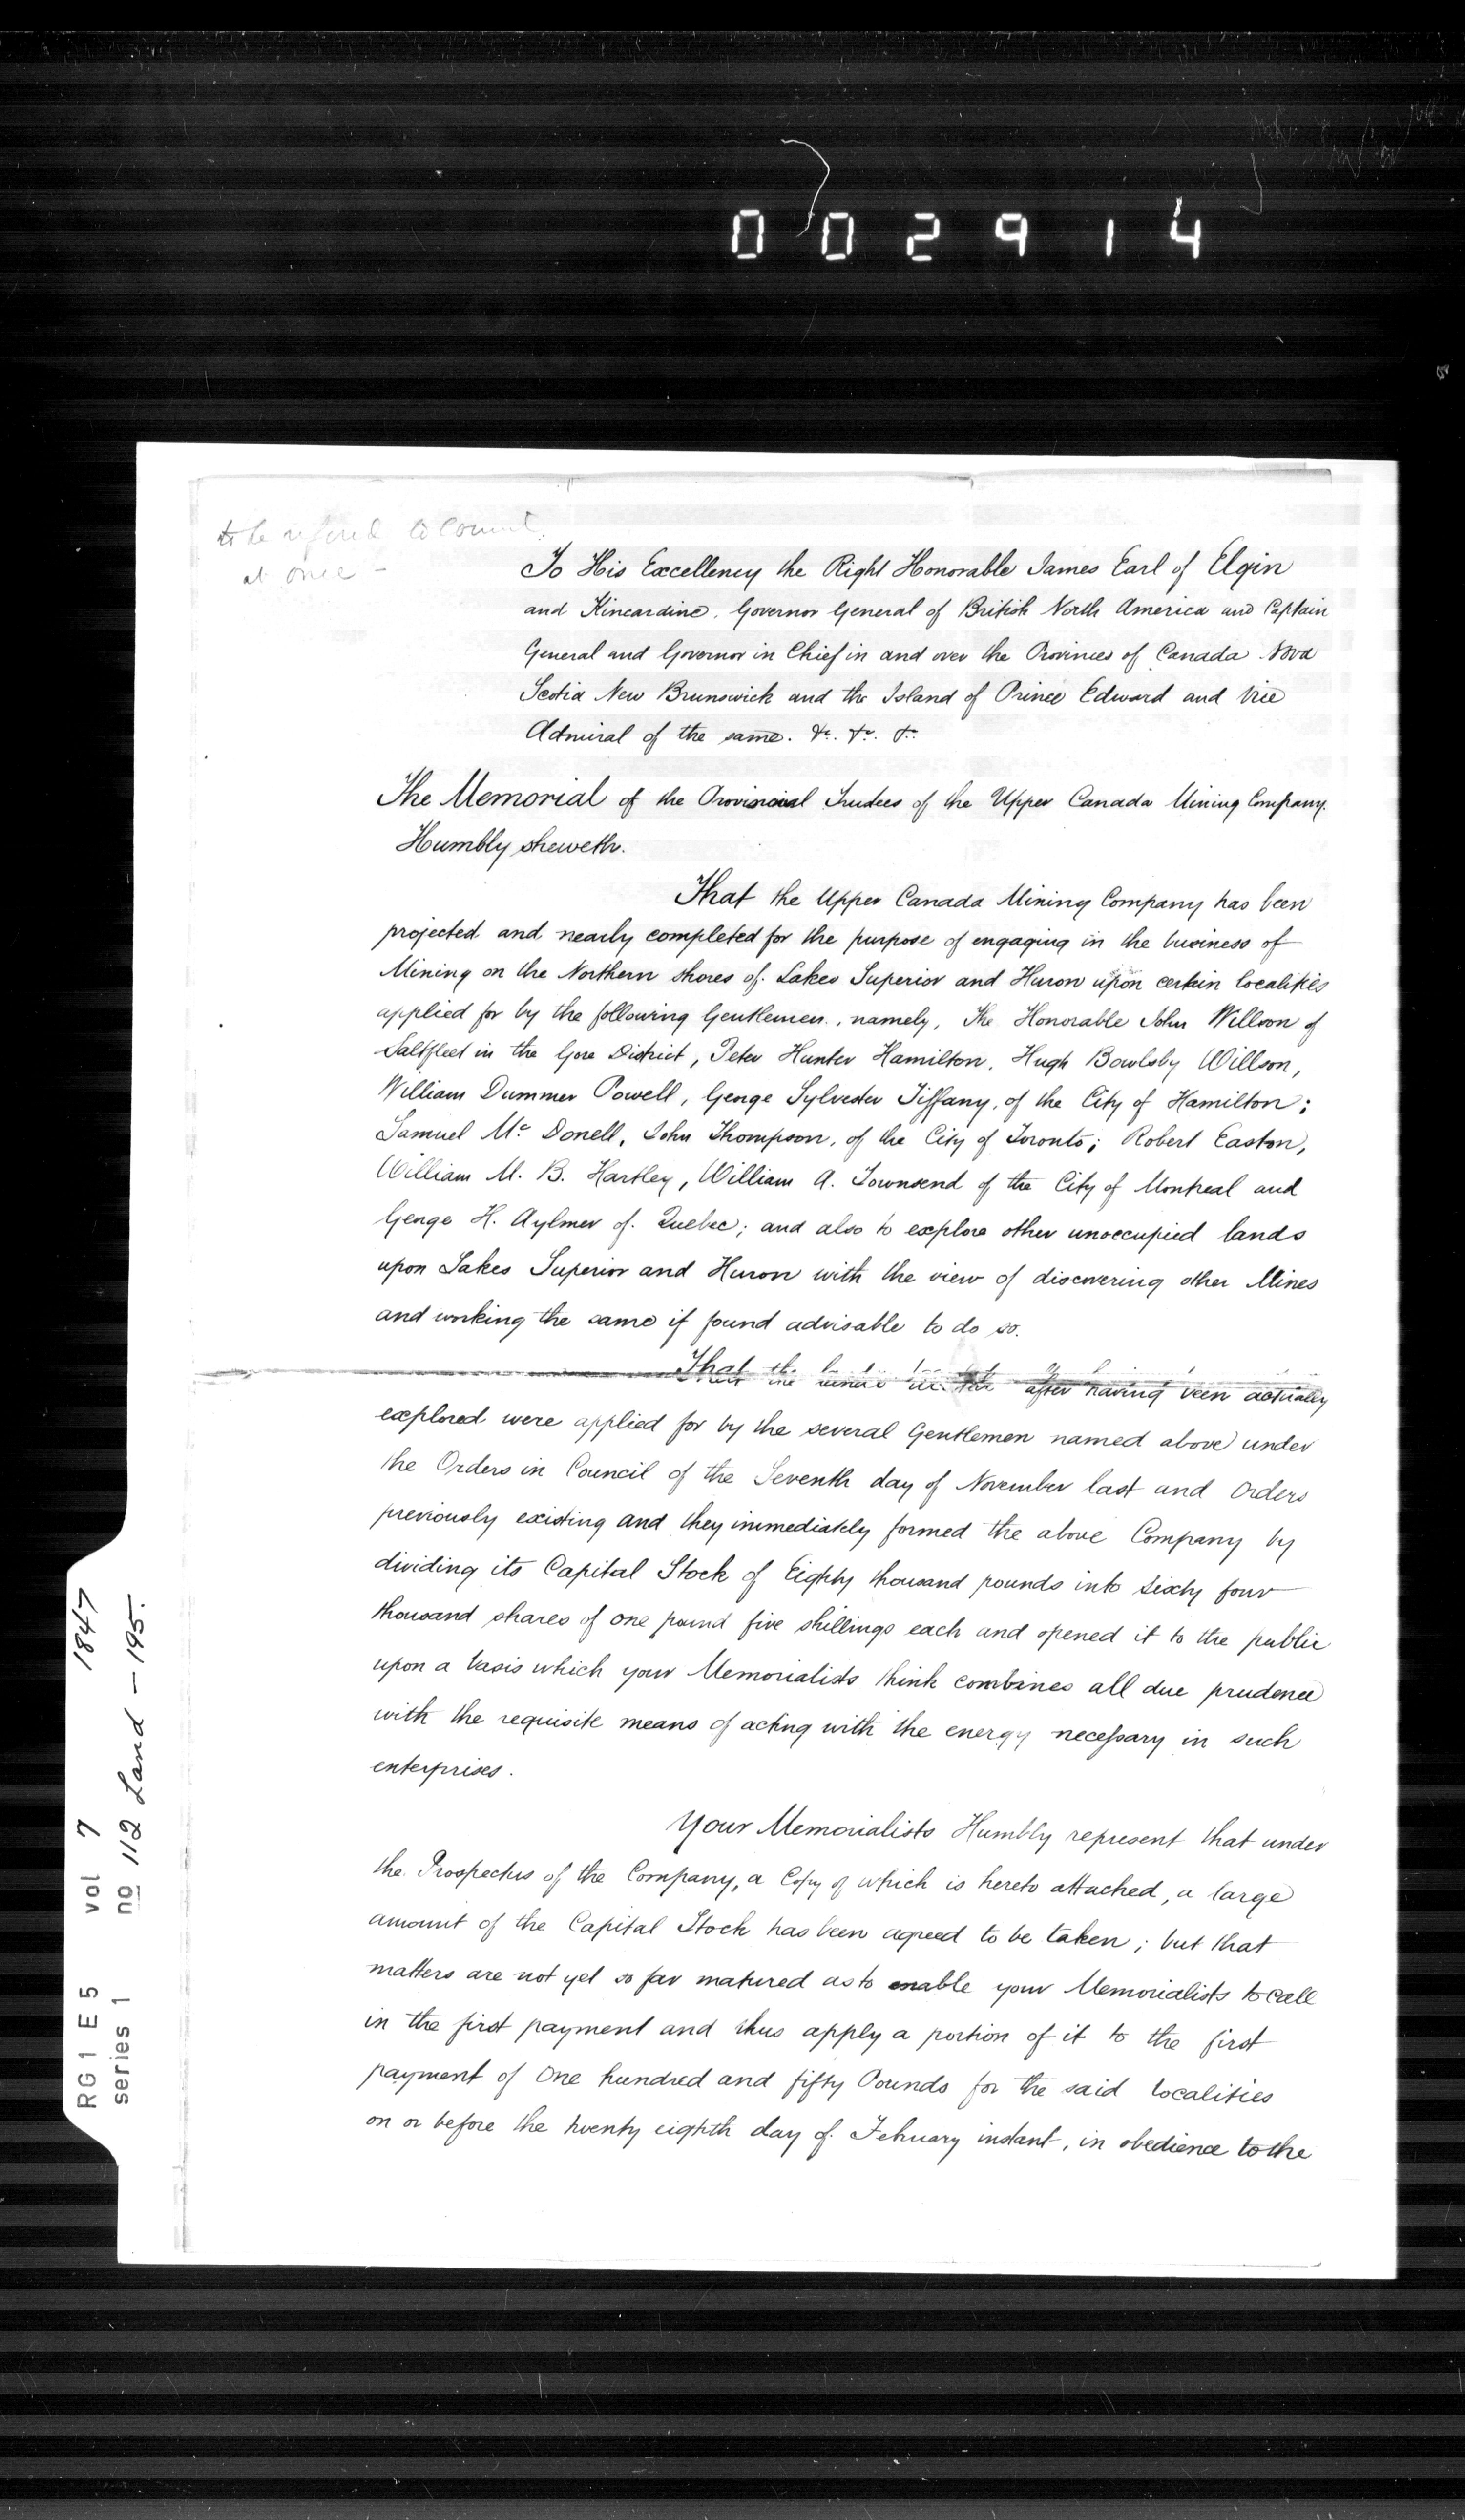 0 0 2 9 1 4
to be referred to Council
at once -
To His Excellency the Right Honorable James Earl of Elgin
and Kincardine, Governor General of British North America and Captain
General and Governor in Chief in and over the Provinces of Canada Nova
Scotia New Brunswick and the Island of Prince Edward and Vice
Admiral of the same. &c. &c. &c.
The Memorial of the Provisional Trustees of the Upper Canada Mining Company.
Humbly sheweth.
That the Upper Canada Mining Company has been
projected and nearly completed for the purpose of engaging in the business of
Mining on the Northern shores of Lakes Superior and Huron upon certain localities
applied for by the following Gentlemen, namely, The Honorable John Willson of
Saltfleet in the Gore District, Peter Hunter Hamilton, Hugh Bowlsby Willson,
William Dummer Powell, George Sylvester Tiffany, of the City of Hamilton;
Samuel Mc Donell, John Thompson, of the City of Toronto; Robert Easton,
William M. B. Hartley, William A. Townsend of the City of Montreal and
George H. Aylmer of Quebec; and also to explore other unoccupied lands
upon Lakes Superior and Huron with the view of discovering other Mines
and working the same if found advisable to do so.
That the after having been actually
explored were applied for by the several Gentlemen named above under
the Orders in Council of the Seventh day of November last and Orders
previously existing and they immediately formed the above Company by
dividing its Capital Stock of Eighty thousand pounds into Sixty four
thousand shares of one pound five shillings each and opened it to the public
upon a basis which your Memorialists think combines all due prudence
with the requisite means of acting with the energy necessary in such
enterprises.
Your Memorialists Humbly represent that under
the Prospectus of the Company, a Copy of which is hereto attached, a large
amount of the Capital Stock has been agreed to be taken; but that
matters are not yet so far matured as to enable your Memorialists to call
in the first payment and thus apply a portion of it to the first
payment of One hundred and fifty Pounds for the said localities
on or before the twenty eighth day of February instant, in obedience to the
RG1 E5 vol 7 1847
series 1 no 112 Land - 195.